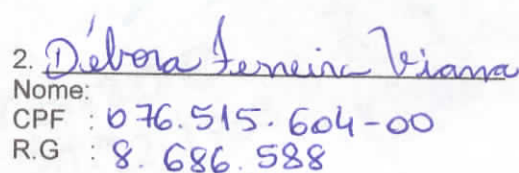 2. Débora Ferreira Viana
Nome:
CPF : 076.515.604-00
R.G : 8.686.588